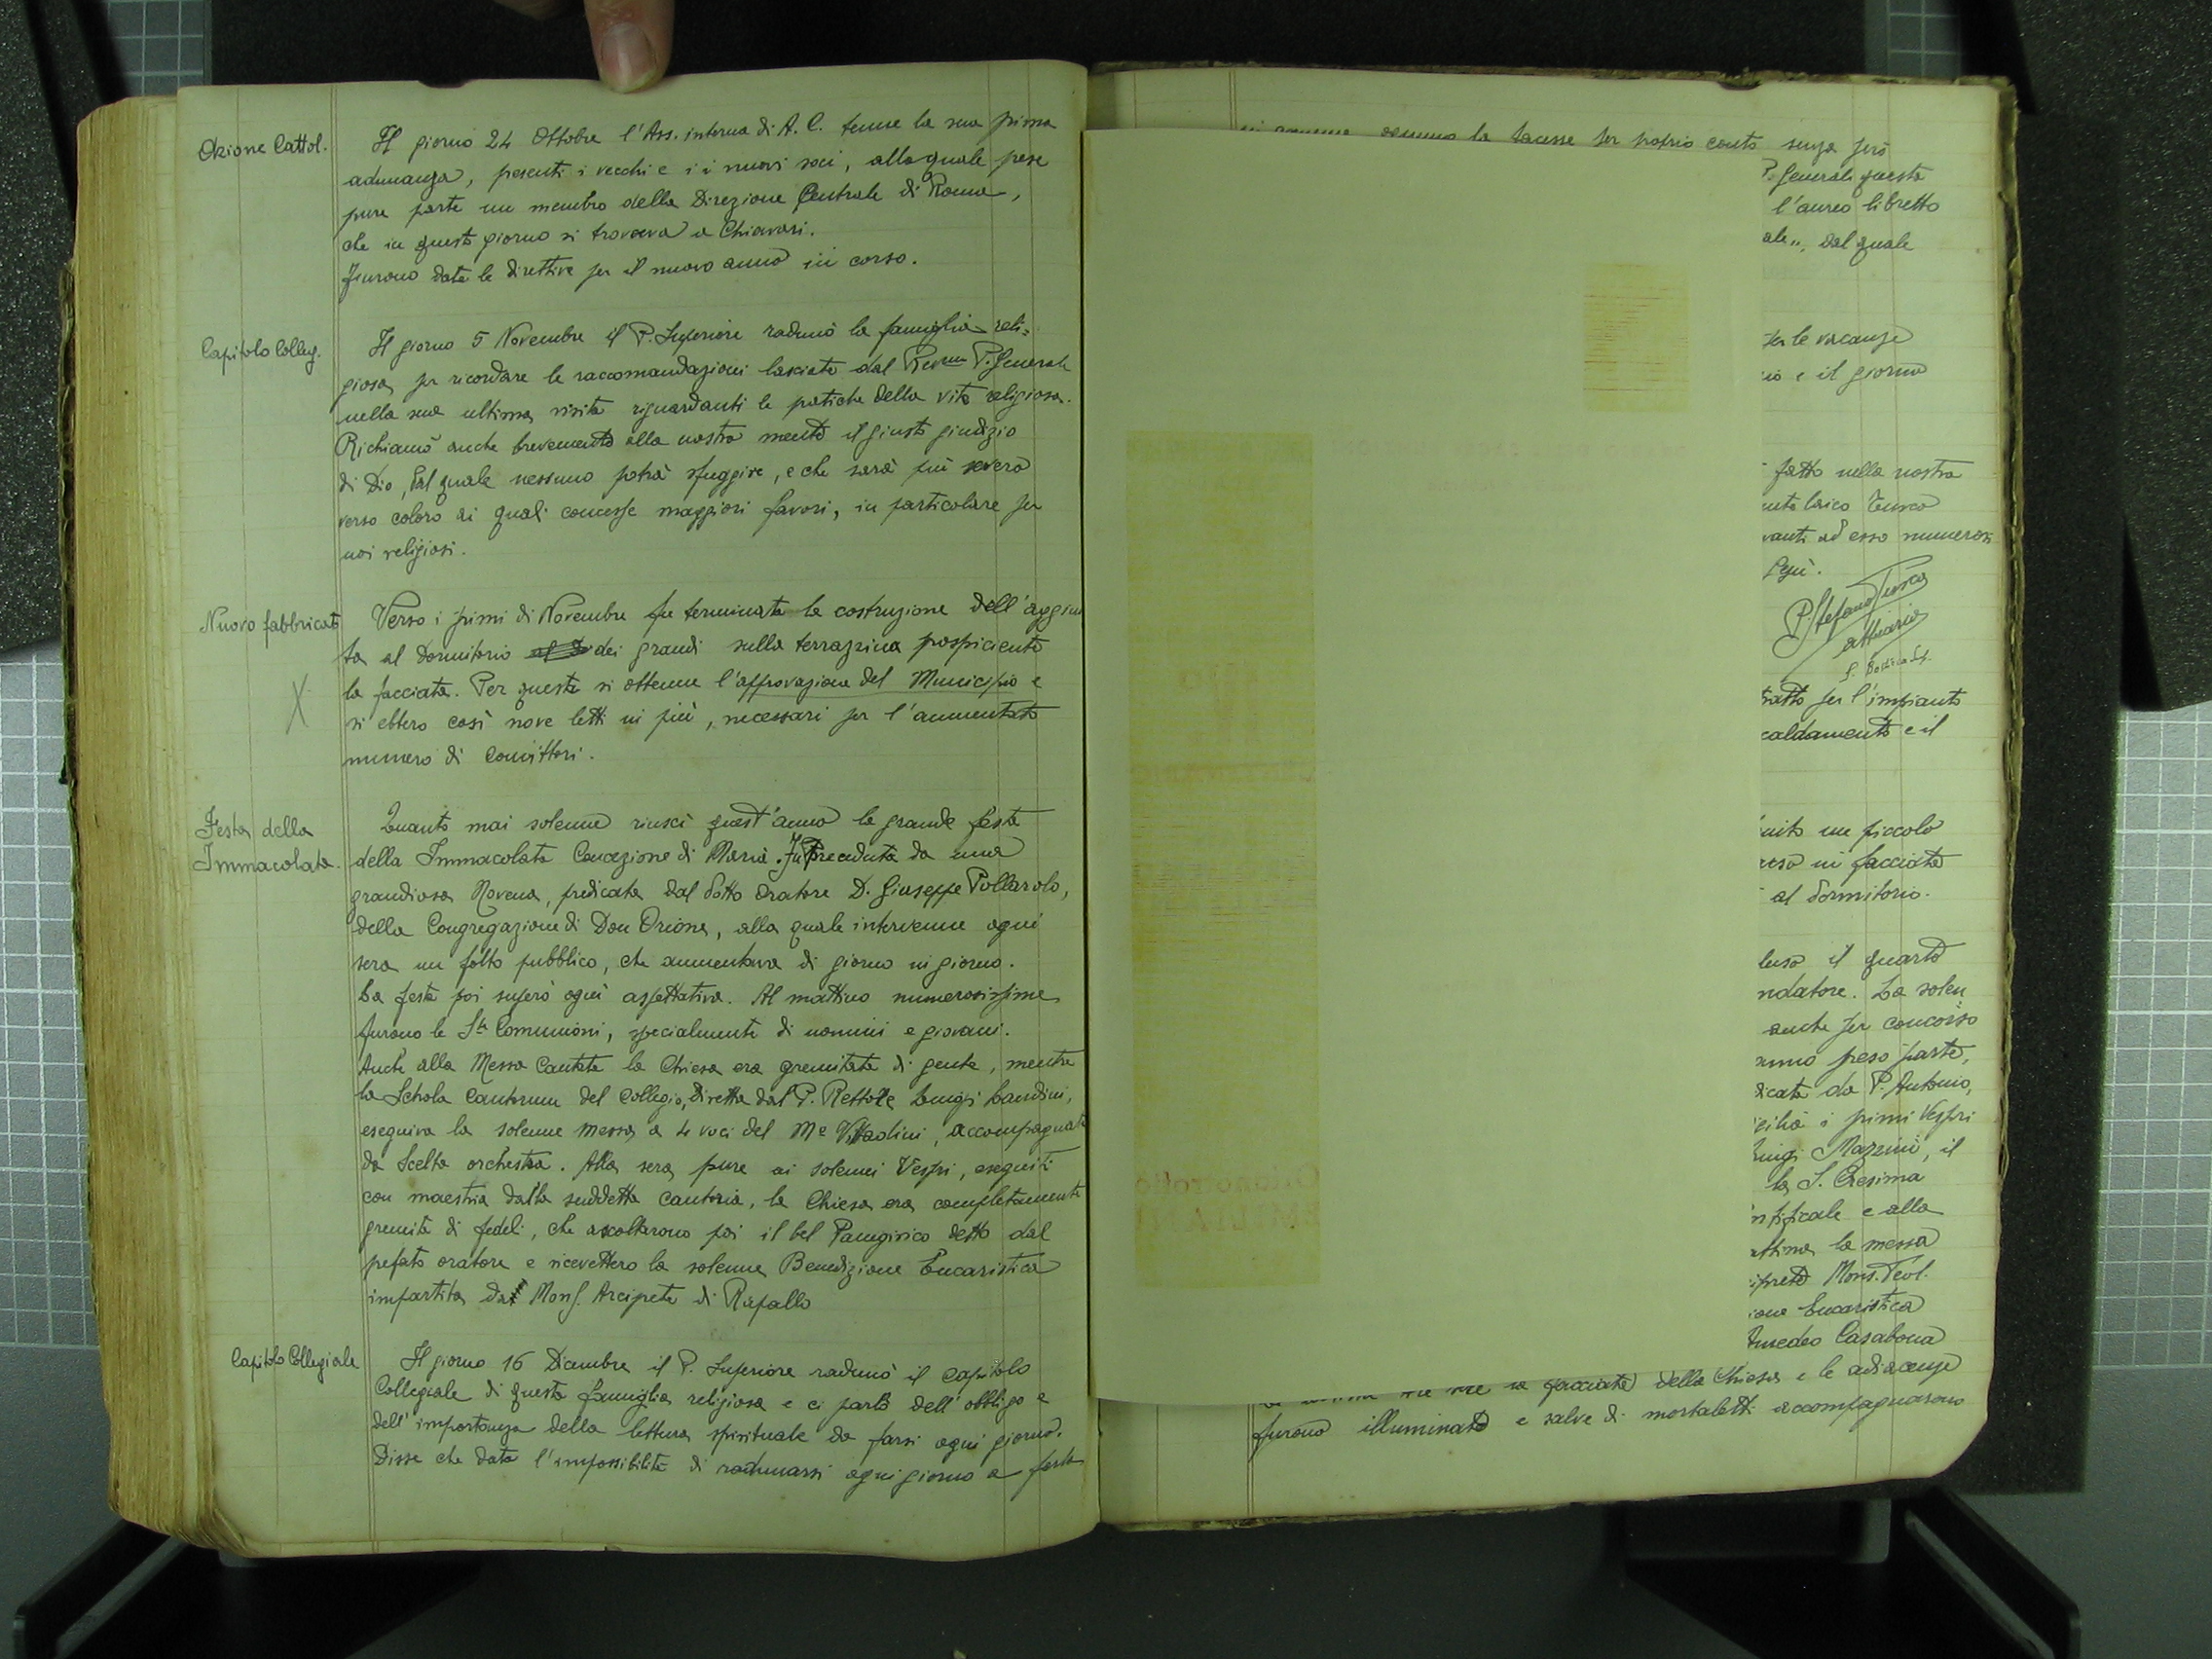 Azione Cattol.
Il giorno 24 Ottobre l'Ass. interna di A. C. tenne la sua prima
adunanza, presenti i vecchi e i i nuovi soci, alla quale prese
pure parte un membro della Direzione Centrale di Roma,
che in questo giorno si trovava a Chiavari.
Furono date le direttive per il nuovo anno in corso.
Capitolo Colleg.
Il giorno 5 Novembre il P. Superiore radunò la famiglia reli-
giosa, per ricordare le raccomandazioni lasciate dal Rev.mo P. Generale
nella sua ultima visita riguardanti le pratiche della vita religiosa.
Richiamò anche brevemente alla nostra mente il giusto giudizio
di Dio, dal quale nessuno potrà sfuggire, e che sarà più severo
verso coloro ai quali concesse maggiori favori, in particolare per
noi religiosi.
Nuovo fabbricato
Verso i primi di Novembre fu terminata la costruzione dell'aggiun
ta al dormitorio dei grandi sulla terrazzina prospiciente
la facciata. Per questa si ottenne l'approvazione del Municipio e
X si ebbero così nove letti in più, necessari per l'aumentato
numero di convittori.
Festa della
Immacolata.
Quanto mai solenne riuscì quest'anno la grande festa
della Immacolata Concezione di Maria. Fu preceduta da una
grandiosa Novena, predicata dal dotto oratore D. Giuseppe Pollarolo,
della Congregazione di Don Orione, alla quale intervenne ogni
sera un folto pubblico, che aumentava di giorno in giorno.
La festa poi superò ogni aspettativa. Al mattino numerosissime
furono le S.te Comunioni, specialmente di uomini e giovani.
Anche alla Messa Cantata la Chiesa era gremitata di gente, mentre
la Schola Cantorum del Collegio, diretta dal P. Rettore Luigi Landini,
eseguiva la solenne messa a 4 voci del Me Vittadini, accompagnata
da scelta orchestra. Alla sera, pure ai solenni Vespri, eseguiti
con maestria dalla suddetta cantoria, la Chiesa era completamente
gremita di fedeli, che ascoltarono poi il bel Panegirico detto dal
prefato oratore e ricevettero la solenne Benedizione Eucaristica
impartita da Mons. Arciprete di Rapallo
Capitolo Collegiale
Il giorno 16 Dicembre il P. Superiore radunò il Capitolo
Collegiale di questa famiglia religiosa e ci parlò dell'obbligo e
dell'importanza della lettura spirituale da farsi ogni giorno.
Disse che data l'impossibilità di radunarsi ogni giorno a farla
la facesse per proprio conto senza però
P. Generale questa
l'aureo libretto
ale", dal quale
per le vacanze
e il giorno
fatto nella nostra
laico Tursco
vanti ad esso numerosi
P. Stefano
attuario
per l'impianto
caldamento e il
un piccolo
in facciata
al dormitorio.
il quarto
ndatore. La solen
anche per concorso
preso parte,
dicata da P. Antonio,
i primi Vespri
Luigi Mazzini, il
la S. Cresima
ntificale e alla
la messa
Mons. Teol.
ione Eucaristica
Amedeo Casabona
la facciata della Chiesa e le adiacenze
furono illuminate e salve di mortaletti accompagnarono